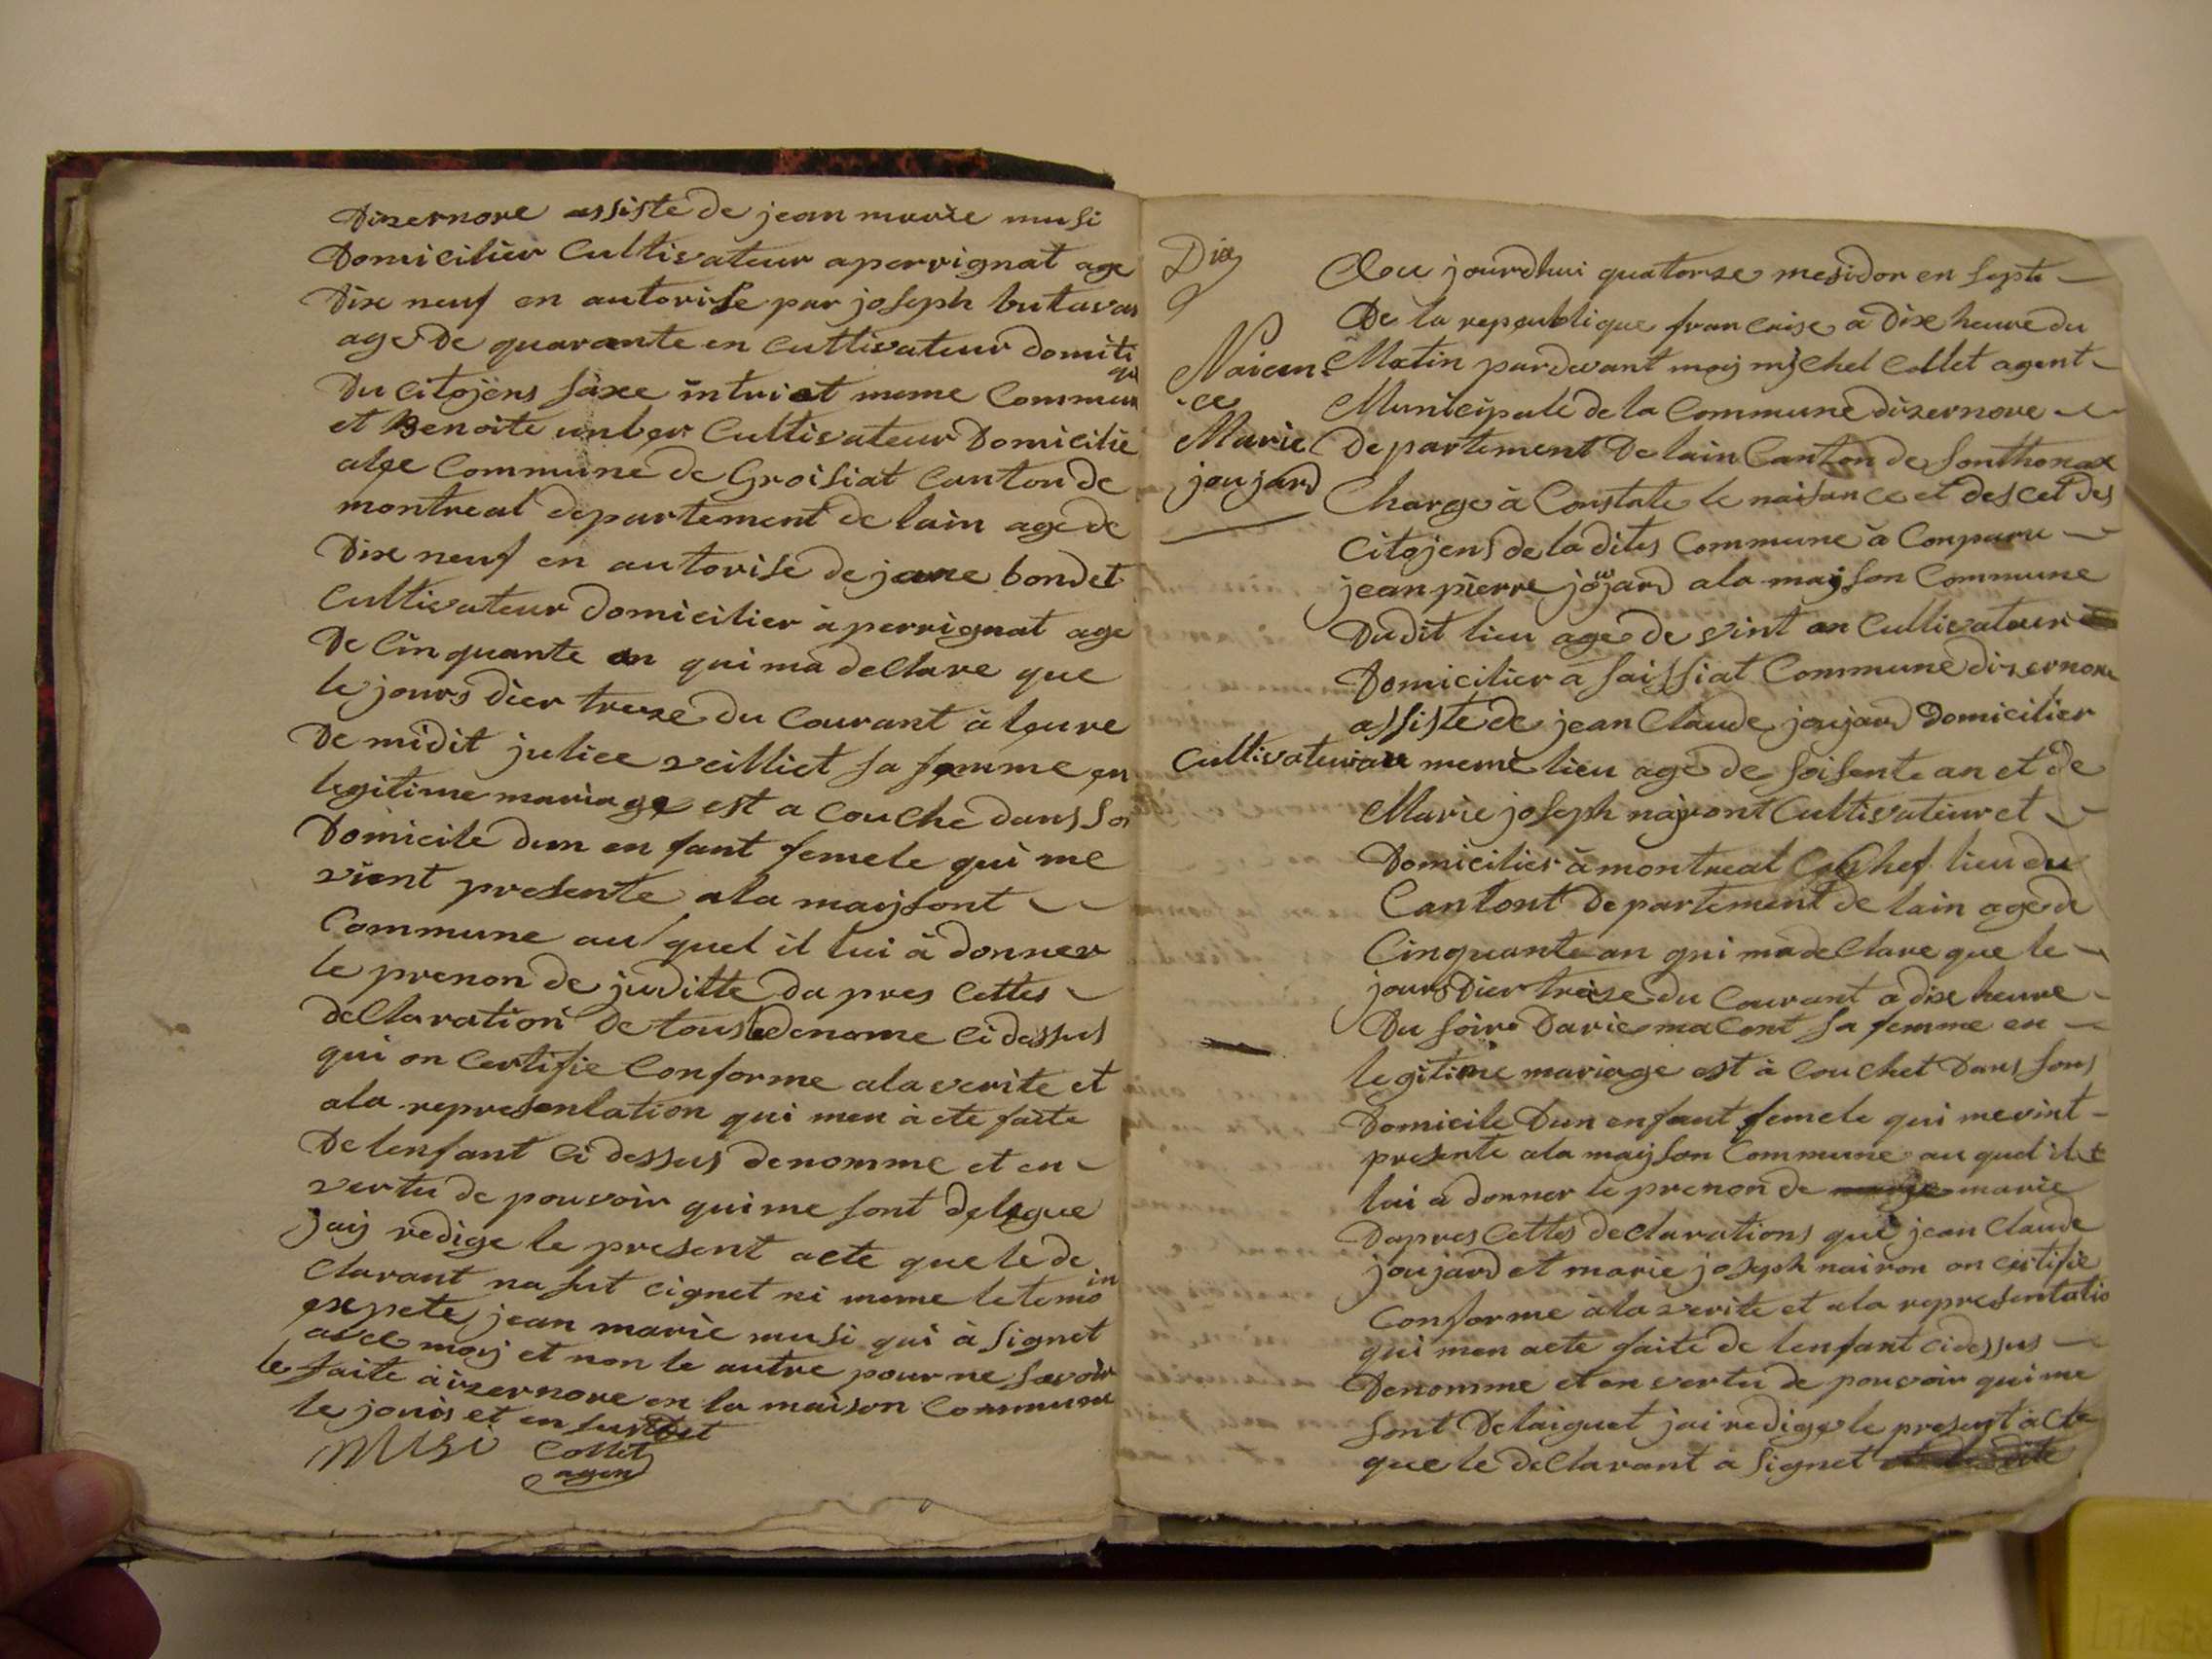 Dizernore assiste de jean marie musi
Domicilier Cultivateur a perrignat age
Dix neuf en autorise par joseph butavas
age De quarante en cultivateur domici
Du citojens saxe meme Commun
et Benoite Cultivateur Domicilie
Commune de Groisiat Canton de
montreal departement de lain age de
Dix neuf en autorise de bondet
Cultivateur domicilier à perrignat age
De Cinquante an qui ma deClare que
le jours dier treze du Courant à leure
De midit veilliet sa femme en
legitime mariage est a CouChe dans son
Domicile dun en fant femele qui me
vient presente ala maijsont
Commune au quel il lui à donner
le prenon de juditte da pres Cettes
deClaration De tous denome Ci dessus
qui on Certifie Conforme ala verite et
ala representation qui men à ete faite
De lenfant Ci dessus denomme et en
vertu de pouvoir qui me sont delegue
jaij redige le present acte que le de
Clarant na sut cignet ni meme le temoin
expete jean marie musi qui à signet
avec moij et non le autre pour ne savoir
le faite à izernore en la maison Commune
le jours et en susdet
Musi Collet
agent
Dix
9
Naicen
-ce
Marie
joujard
Cou jourdhui quatorze mesidor en septe
De la republique francaise a Dix heure du
Matin pardevant moij mijchel Collet agent
Municipale de la Commune dizernore
Departement De lain Canton de Sonthonax
Charge à Constate le naisance et desCet des
Citojens de la dites Commune à Conparu
jean pierre joujard ala maijson Commune
Dudit lieu age de vint an Cultivateur
Domicilier a saissiat Commune dizernore
assiste de jean Claude joujard Domicilier
Cultivateur au meme lieu age de soisente an et de
Marie joseph najront Cultivateur et
Domicilier à montreal Chef lieu du
Cantont Departement de lain age de
Cinquante an qui ma deClare que le
jours Dier treize du Courant a dix heure
Du soire Darie maCont sa femme en
legitime mariage est à Couchet Dans sons
Domicile Dun enfant femele qui me vint
presente ala maijson Commune au quel il
lui a donner le prenon de marie
Dapres Cettes declarations que jean Claude
joujard et marie joseph nairon on certifie
Conforme à la verite et ala representatio
qui men aete faite de lenfant ci dessus
Denomme et en vertu de pouvoir qui me
sont Delaiguet jai redige le present àcte
que le deClarant a signet